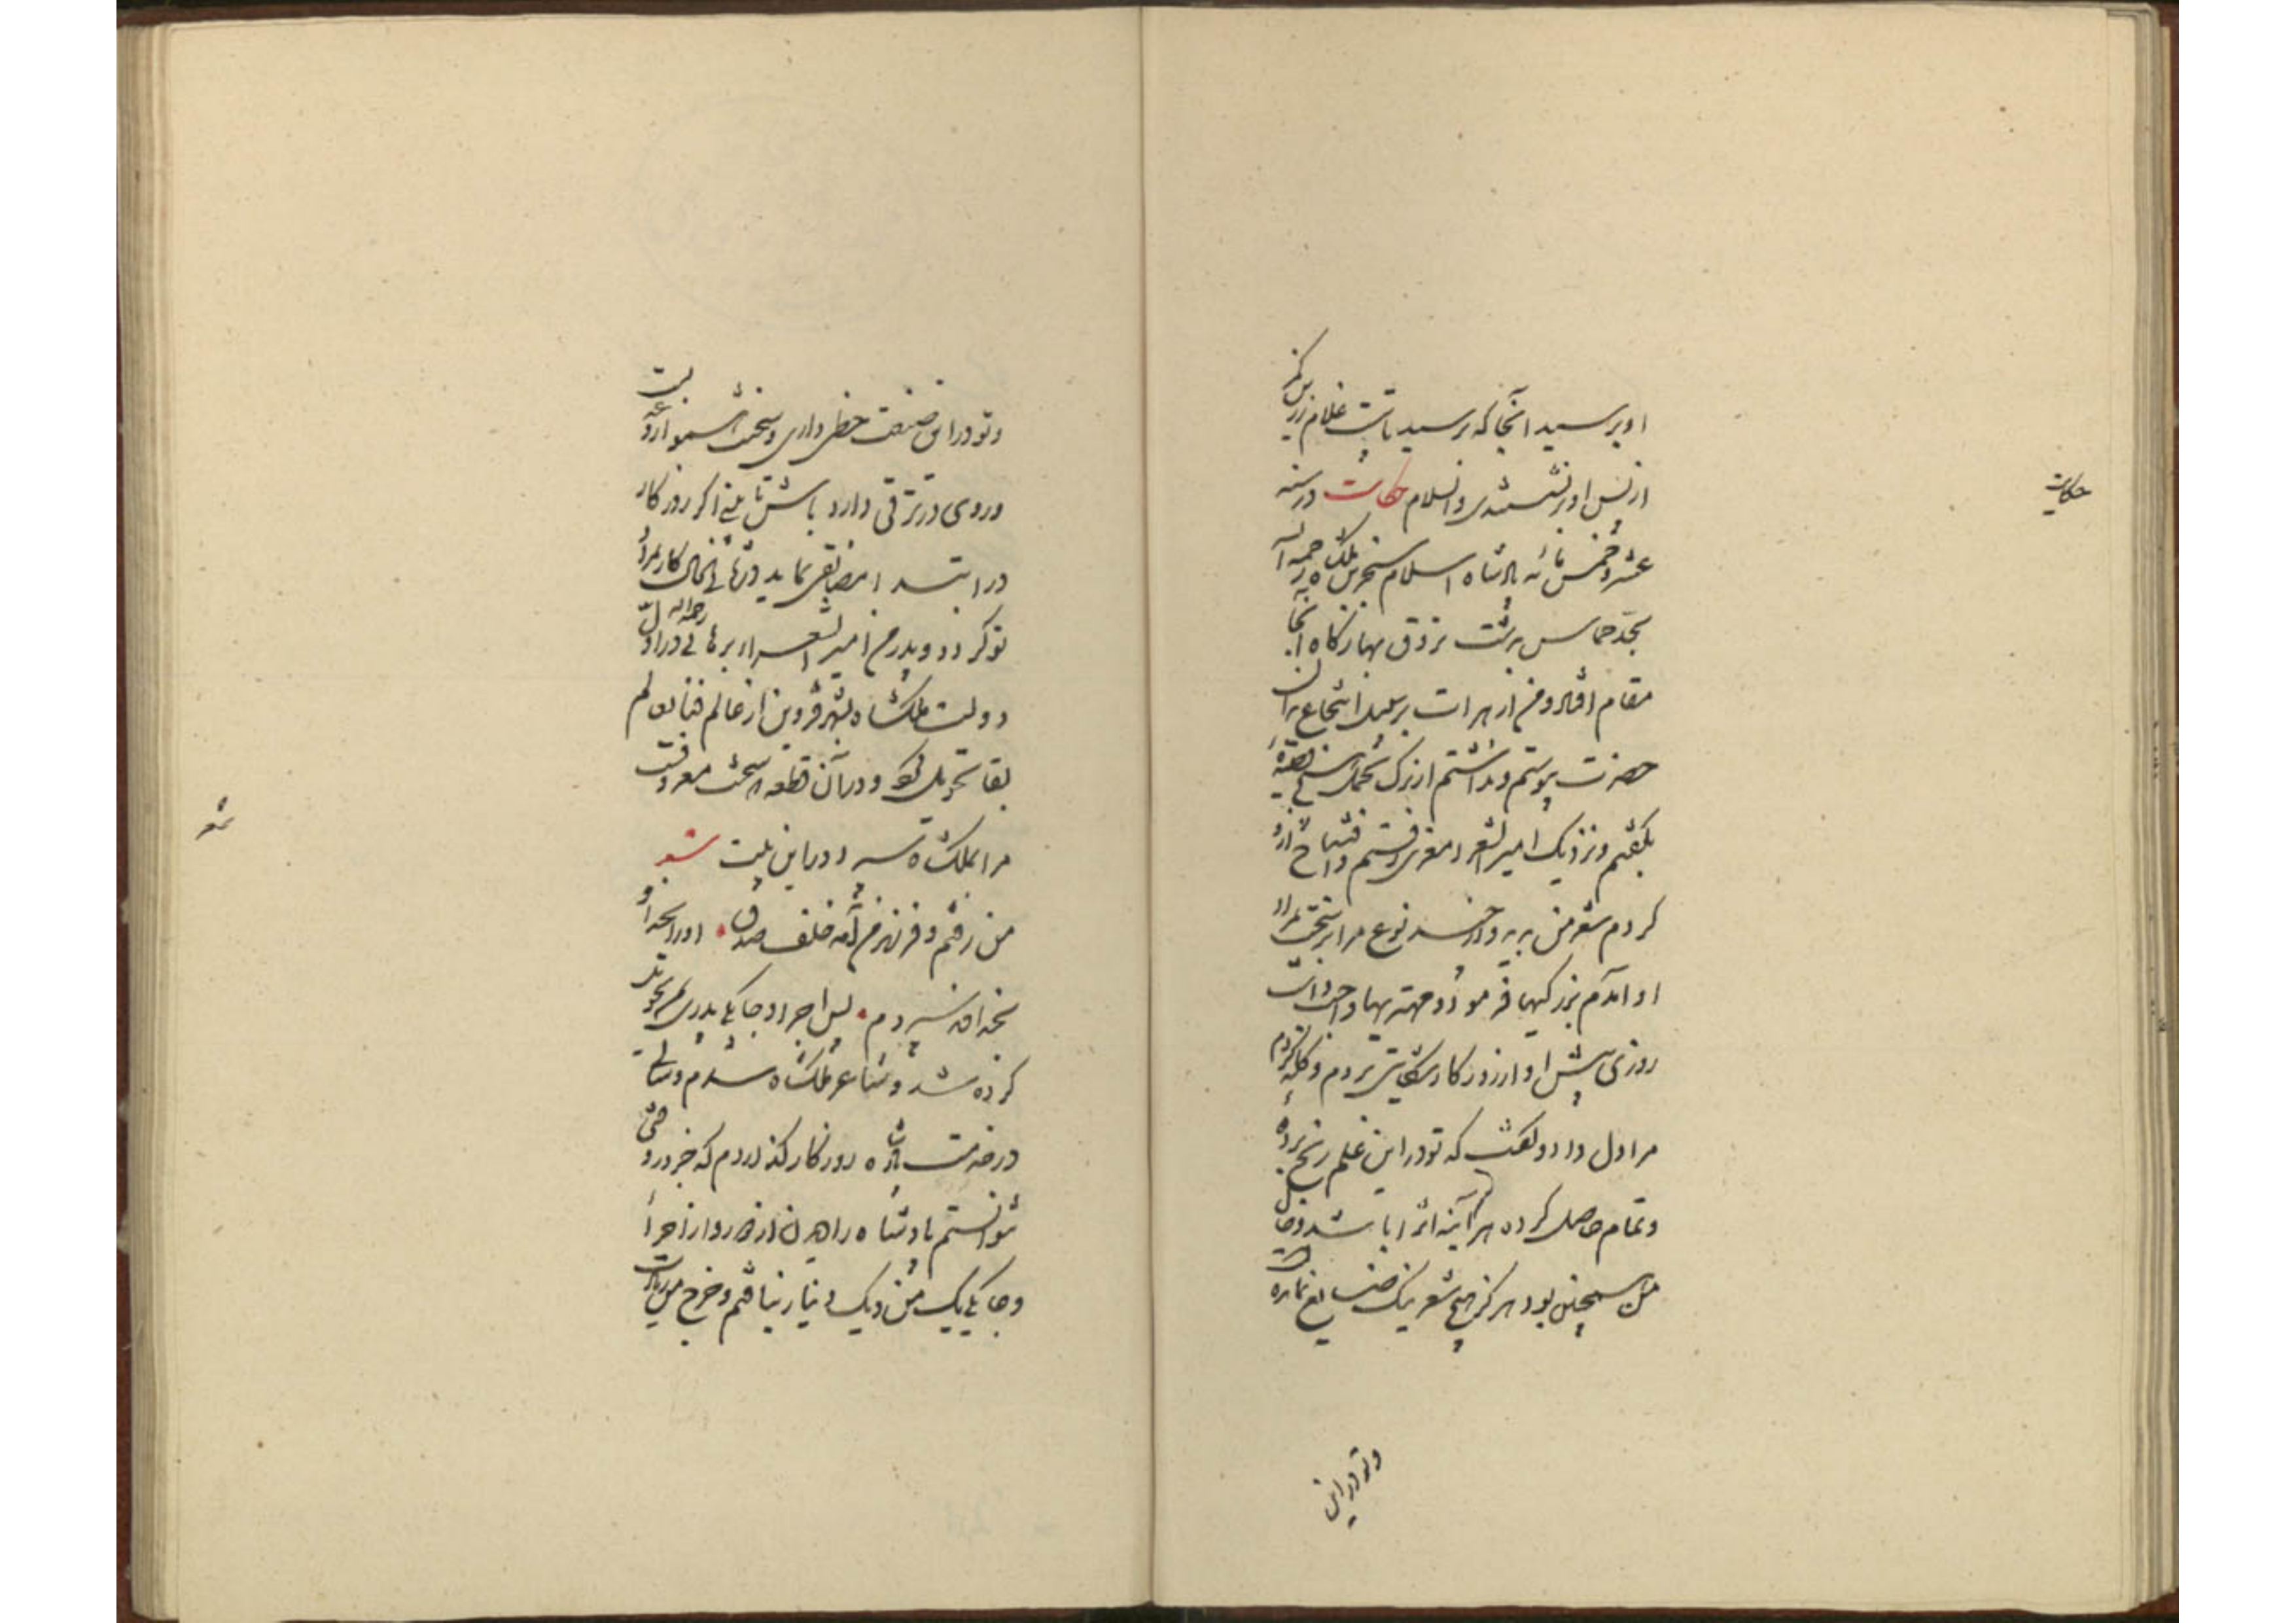 او برسید آنجا که برسید تا بیست غلام زرین کمر
از پس او بر نشستندی والسلام حکایت در سنه
عشر و خمس مائه پادشاه اسلام سنجر بن ملکشاه رحمه الله
بحد طوس بدشت تروق بهارگاه آنجا
مقام افتاد و من از هرات بر سبیل انتجاع بدان
حضرت پیوستم و نداشتم از برگ و تجمل هیچ قصیده
بگفتم و نزدیک امیر الشعراء معزی رفتم و افتتاح از او
کردم شعر من بدید و از چند نوع مرا بر سخت بمراد
او آمدم بزرگیها فرمود و مهتریها واجب داشت
روزی پیش او از روزگار شکایتی بردم و گله کردم
مرا دل داد و گفت که تو در این علم رنج برده
و تمام حاصل کرده هر آینه اثر آن باشد و حال
من همچنین بود هرگز هیچ شعر نیک ضایع نمانده است
و تو در این
حکایت
و تو در این صنعت حظی داری و سخنت هموار و عذبست
و روی در ترقی دارد باش تا بینی اگر روزگار
در ابتدا مضایقتی نماید در ثانی الحال کار بمراد
تو گردد و پدر من امیر الشعراء برهانی رحمه الله در اول
دولت ملکشاه بشهر قزوین از عالم فنا بعالم
بقا تحویل کرد و در آن قطعه سخت معروفست
مرا بملکشاه سپرد در این بیت شعر
من رفتم و فرزند من آمد خلف صدق او را بخدا و
بخداوند سپردم پس اجرا و جامگی پدری بمن تحویل
کرده شد و شاعر ملکشاه شدم و سالی
در خدمت پادشاه روزگار گذاردم که جز وقتی
نتوانستم پادشاه را دیدن از دور و از اجرا
و جامگی یک من و یک دینار نیافتم و خرج من زیادت
شعر